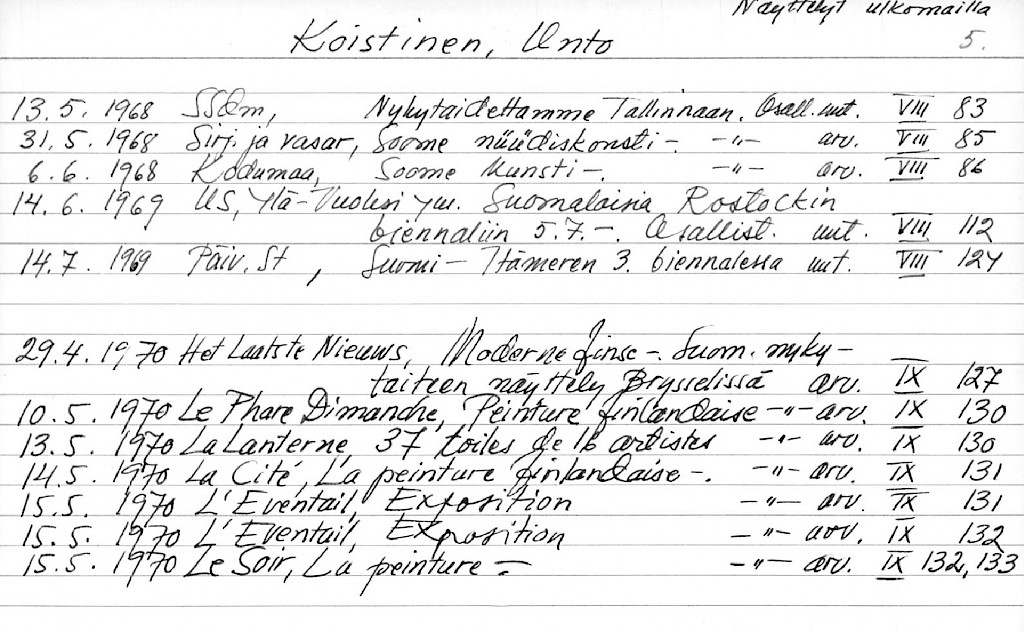 Näyttelyt ulkomailla
Koistinen, Unto 5.
13.5. 1968 SSdm, Nykytaidettamme Tallinnaan. Osall. uut. VIII 83
31.5. 1968 Sirp ja vasar, Soome nüüdiskunsti -. -"- arv. VIII 85
6.6. 1968 Kodumaa, Soome kunsti -. -"- arv. VIII 86
14.6. 1969 US, Ylä-Vuoksi ym. Suomalaisia Rostockin
biennaliin 5.7. -. Osallist. uut. VIII 112
14.7. 1969 Päiv. St, Suomi - Itämeren 3. biennalessa uut. VIII 124
29.4. 1970 Het Laatste Nieuws, Moderne finse -. Suom. nyky-
taiteen näyttely Brysselissä arv. IX 127
10.5. 1970 Le Phare Dimanche, Peinture finlandaise -"- arv. IX 130
13.5. 1970 La Lanterne, 37 toiles de 16 artistes -"- arv. IX 130
14.5. 1970 La Cité, La peinture finlandaise -. -"- arv. IX 131
15.5. 1970 L'Eventail, Exposition -"- arv. IX 131
15.5. 1970 L'Eventail, Exposition -"- arv. IX 132
15.5. 1970 Le Soir, La peinture - -"- arv. IX 132, 133